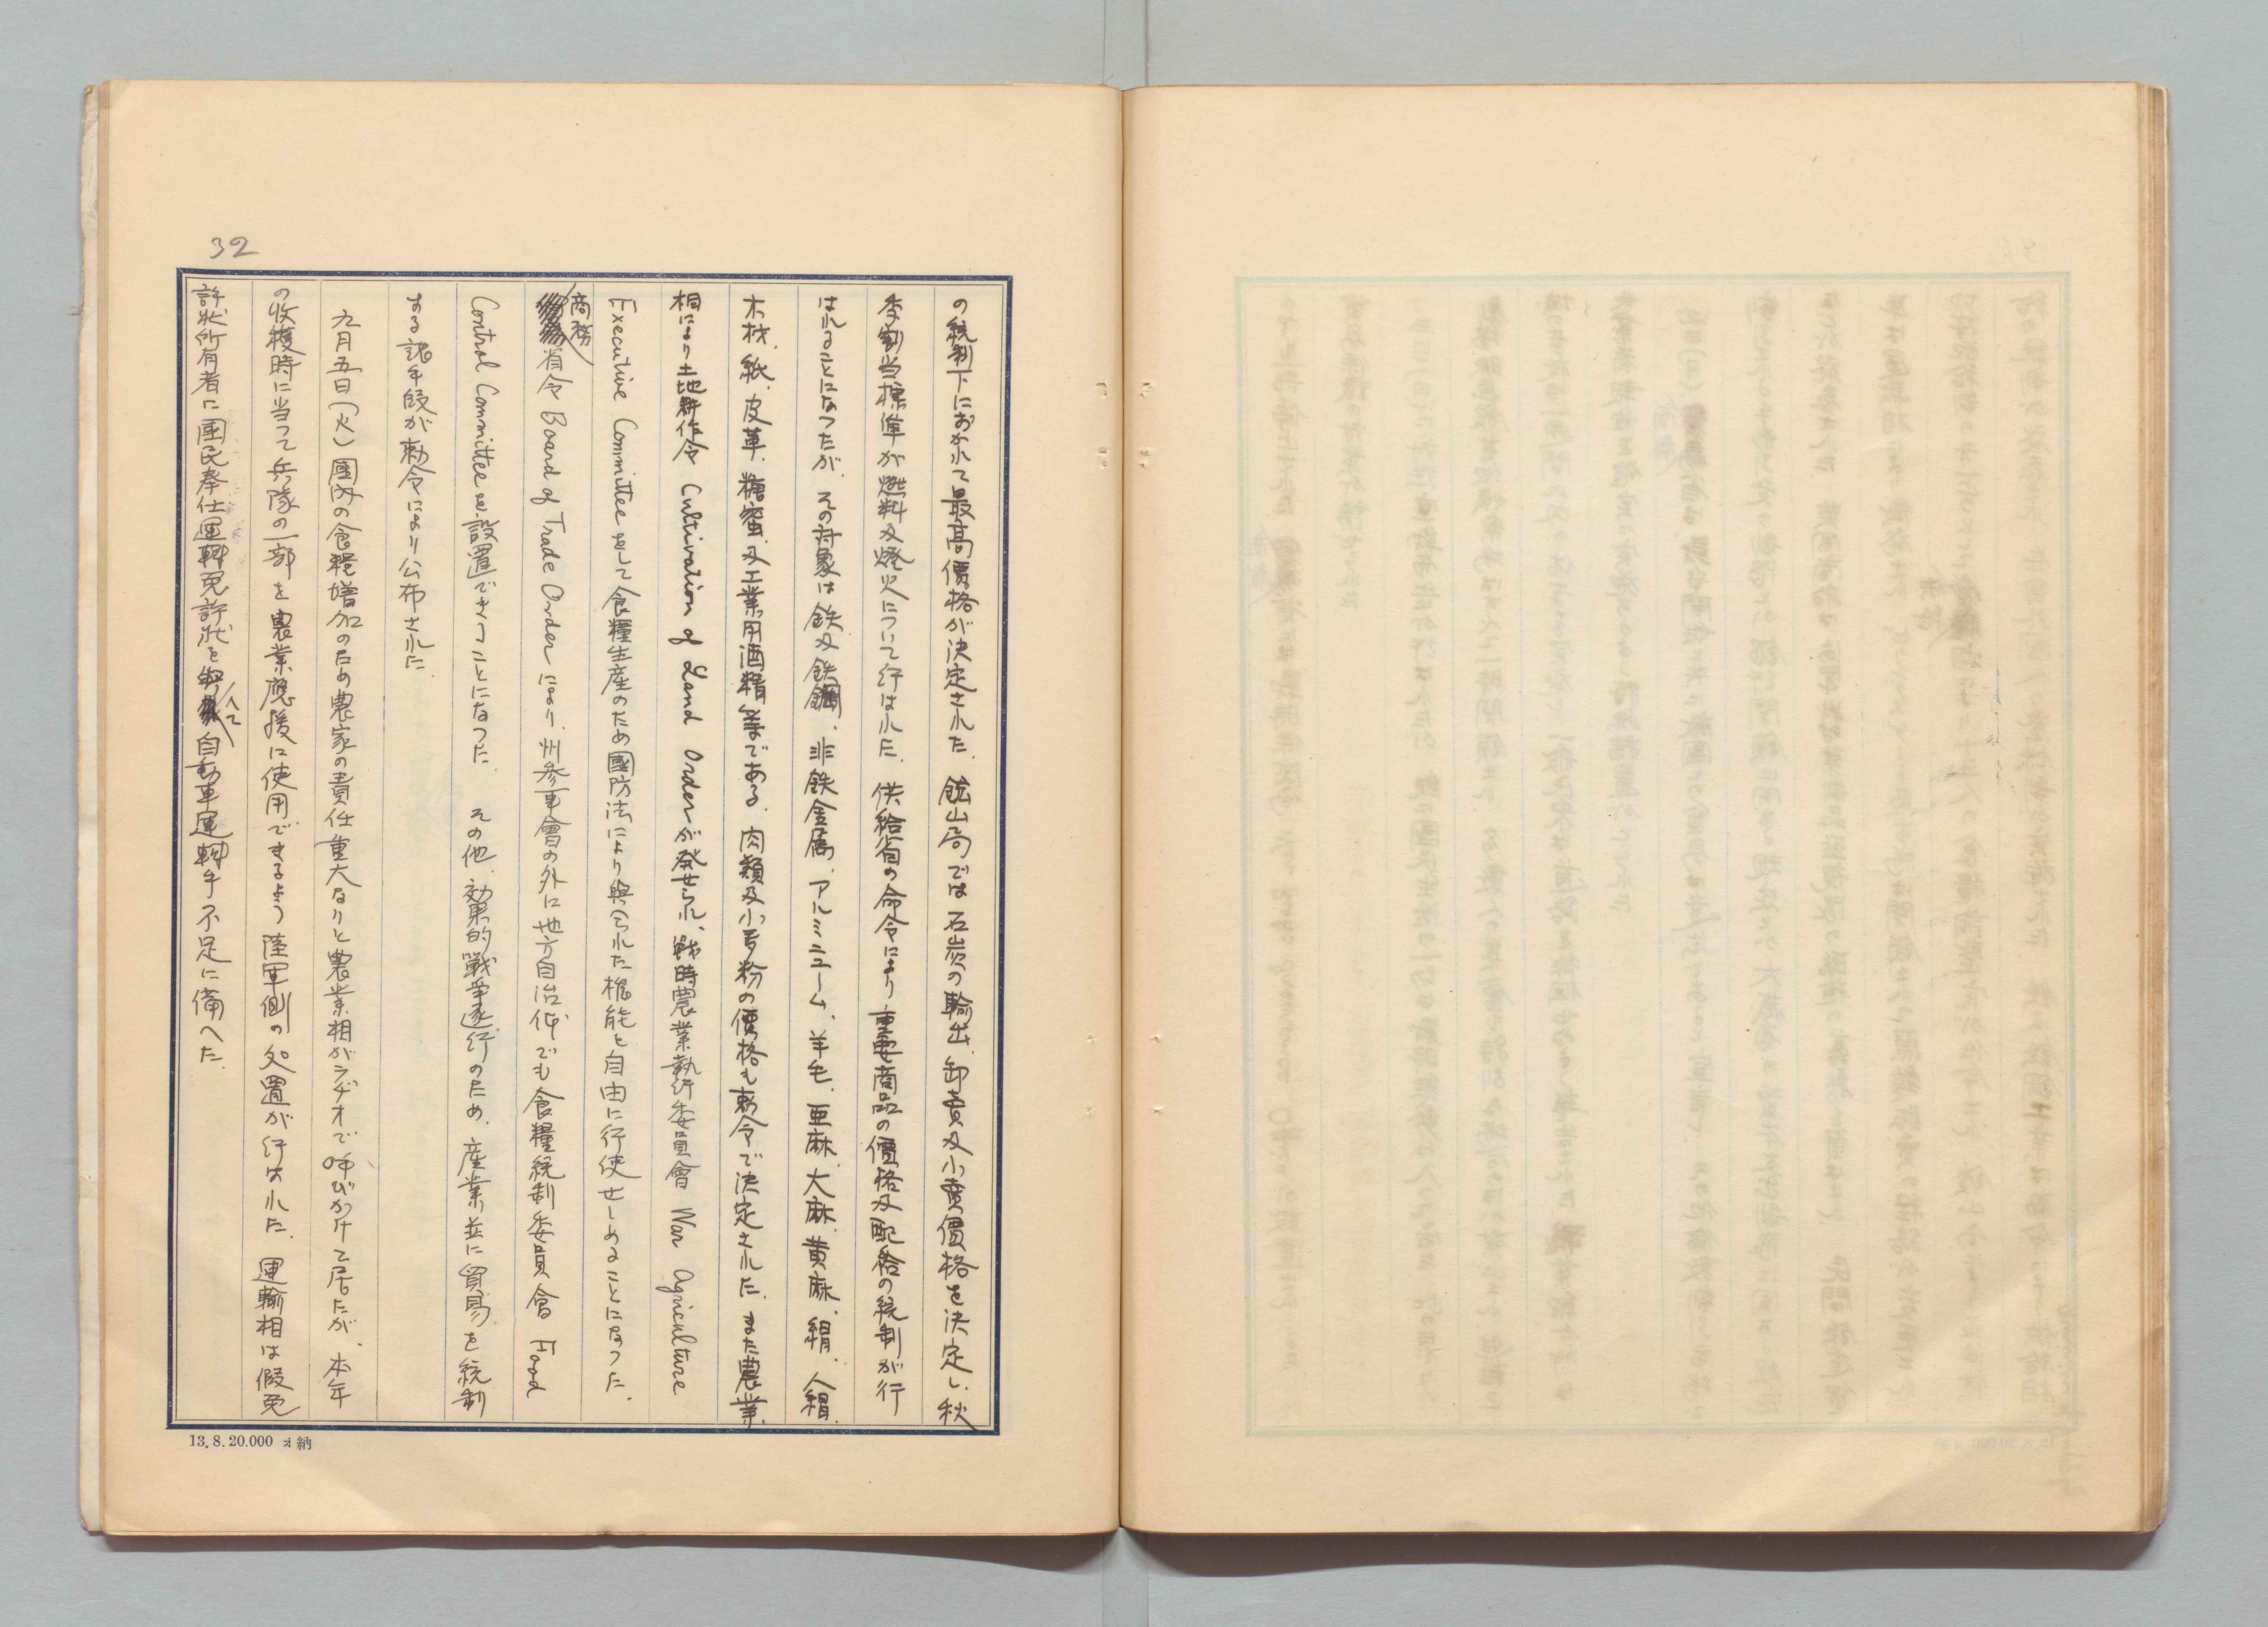 32
の統制下におかれて最高價格が決定された。鉱山局では石炭の輸出、卸賣及小賣價格を決定し、秋
季割当標準が燃料及燈火について行はれた。供給省の命令により重要商品の價格及配給の統制が行
はれることになつたが、その対象は鉄及鉄鋼、非鉄金属、アルミニューム、羊毛、亜麻、大麻、黄麻、絹、人絹、
木材、紙、皮革、糖蜜、及工業用酒精等である。肉類及小麦粉の價格も勅令で決定された。また農業
相により土地耕作令 Cultivation of Land Order が発せられ、戦時農業執行委員會 War Agriculture
Executive Committee をして食糧生産のため國防法により與へられた権能を自由に行使せしめることになつた。
商務省令 Board of Trade Order により、州参事會の外に地方自治体でも食糧統制委員會 Food
Control Committee を設置できることになつた。その他、効果的戦争遂行のため、産業並に貿易を統制
する諸手段が勅令により公布された。
九月五日(火)國内の食糧増加のため農家の責任重大なりと農業相がラヂオで呼びかけて居たが、本年
の收穫時に当つて兵隊の一部を農業應援に使用できるよう陸軍側の処置が行はれた。運輸相は假免
許状所有者に國民奉仕運転免許状を与へて自動車運転手不足に備へた。
13.8.20.000 オ納